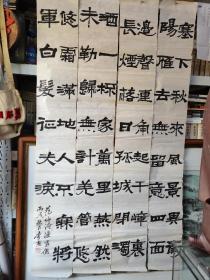 塞下秋來風景異衡
陽雁去無留意四面
邊聲連角起千嶂裏
長煙落日孤城閉濁
酒一杯家萬里燕然
未勒歸無計羌管悠
悠霜滿地人不寐將
軍白髮征夫淚
范仲淹漁家傲